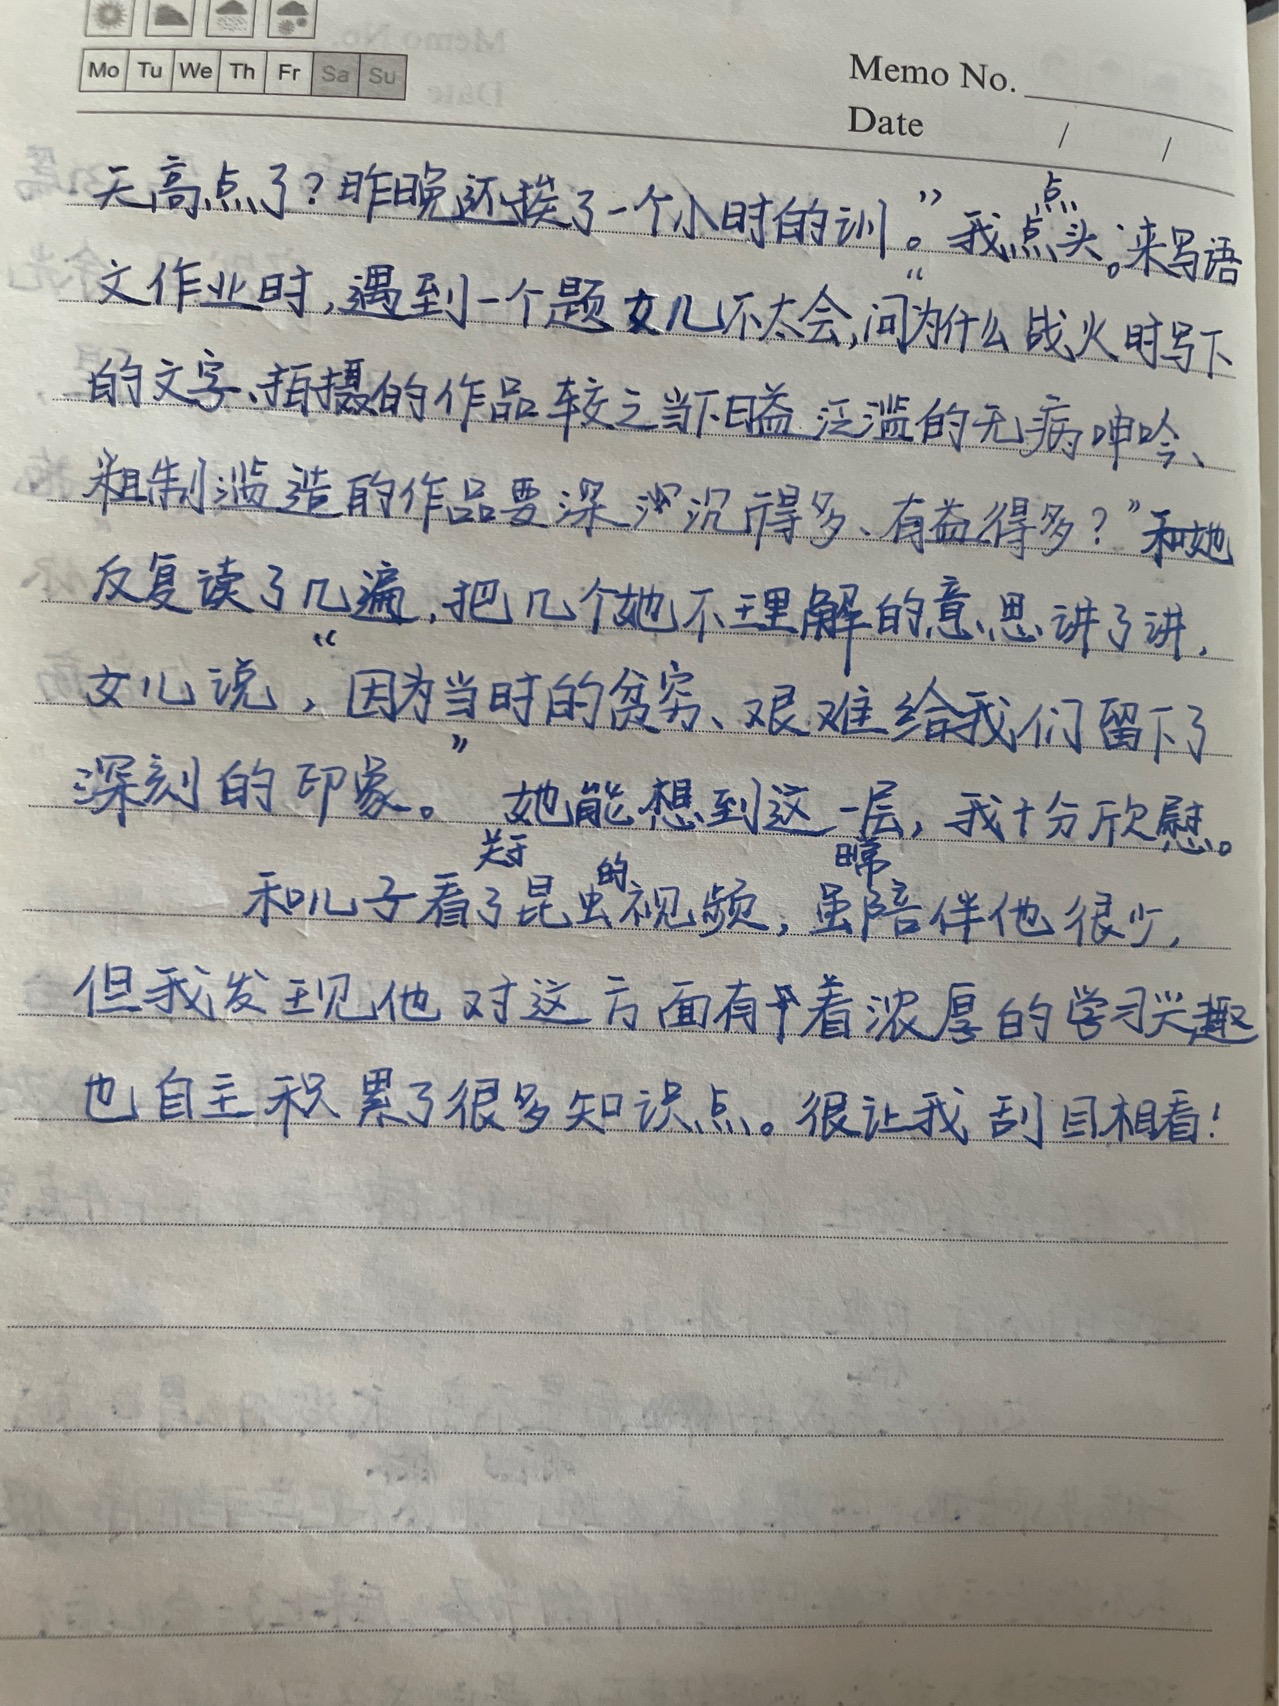 Mo Tu We Th Fr Sa Su
Memo No.
Date / /
天高点了？昨晚还挨了一个小时的训。”我点点头。来写语
文作业时，遇到一个题女儿不太会，问“为什么战火时写下
的文字、拍摄的作品较之当下日益泛滥的无病呻吟、
粗制滥造的作品要深沉得多、有益得多？”和她
反复读了几遍，把几个她不理解的意思讲了讲，
女儿说，“因为当时的贫穷、艰难给我们留下了
深刻的印象。”她能想到这一层，我十分欣慰。
和儿子看了关于昆虫的视频，虽陪伴他很少，
但我发现他对这方面有着浓厚的学习兴趣
也自主积累了很多知识点。很让我刮目相看！